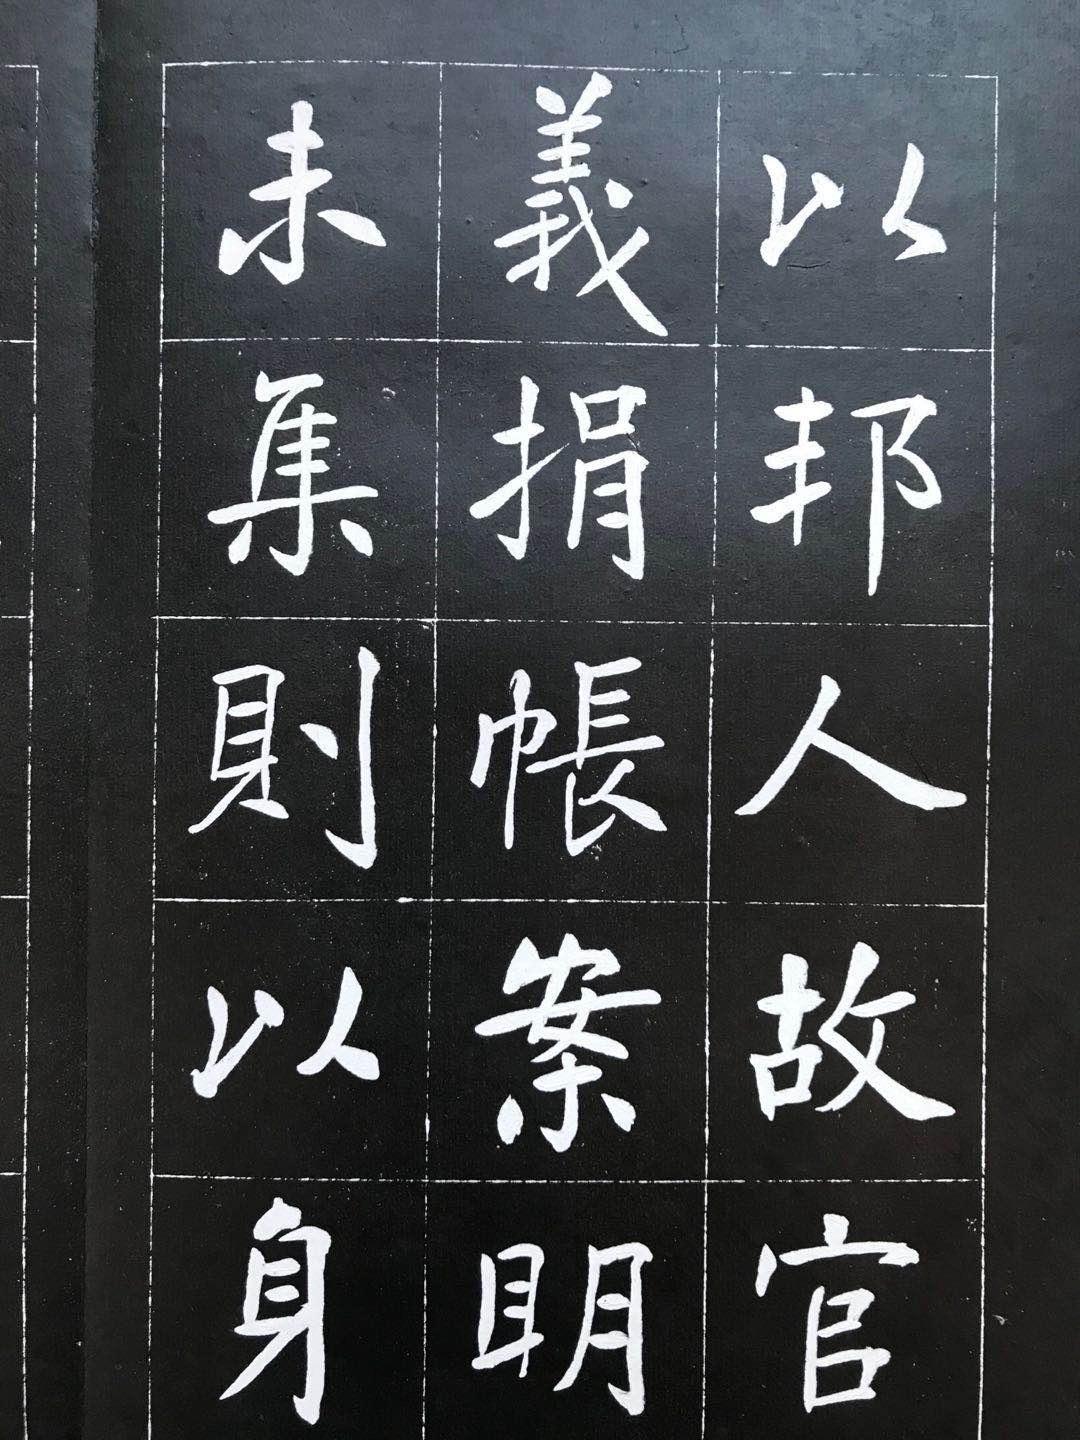 以邦人故官
義捐帳案明
未集則以身